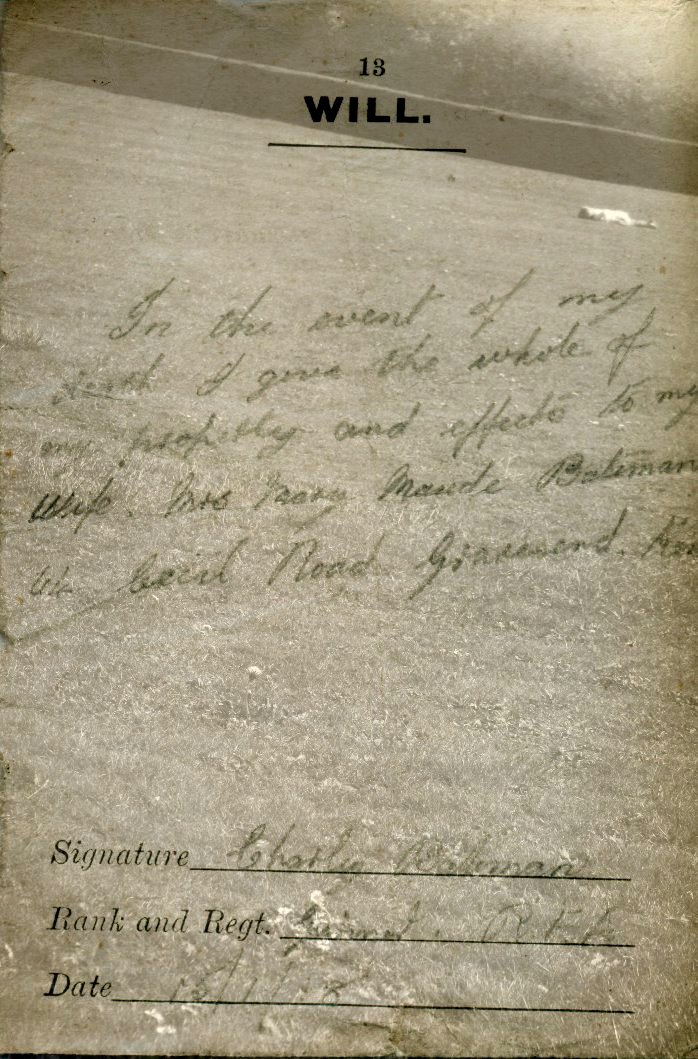 13
WILL.
In the event of my
death I give the whole of
my propertly and effects to my
Wife. Mrs Mary Maude Bateman
Cecil Road Gravesend.
Signature Charley Bateman
Rank and Regt.
Date